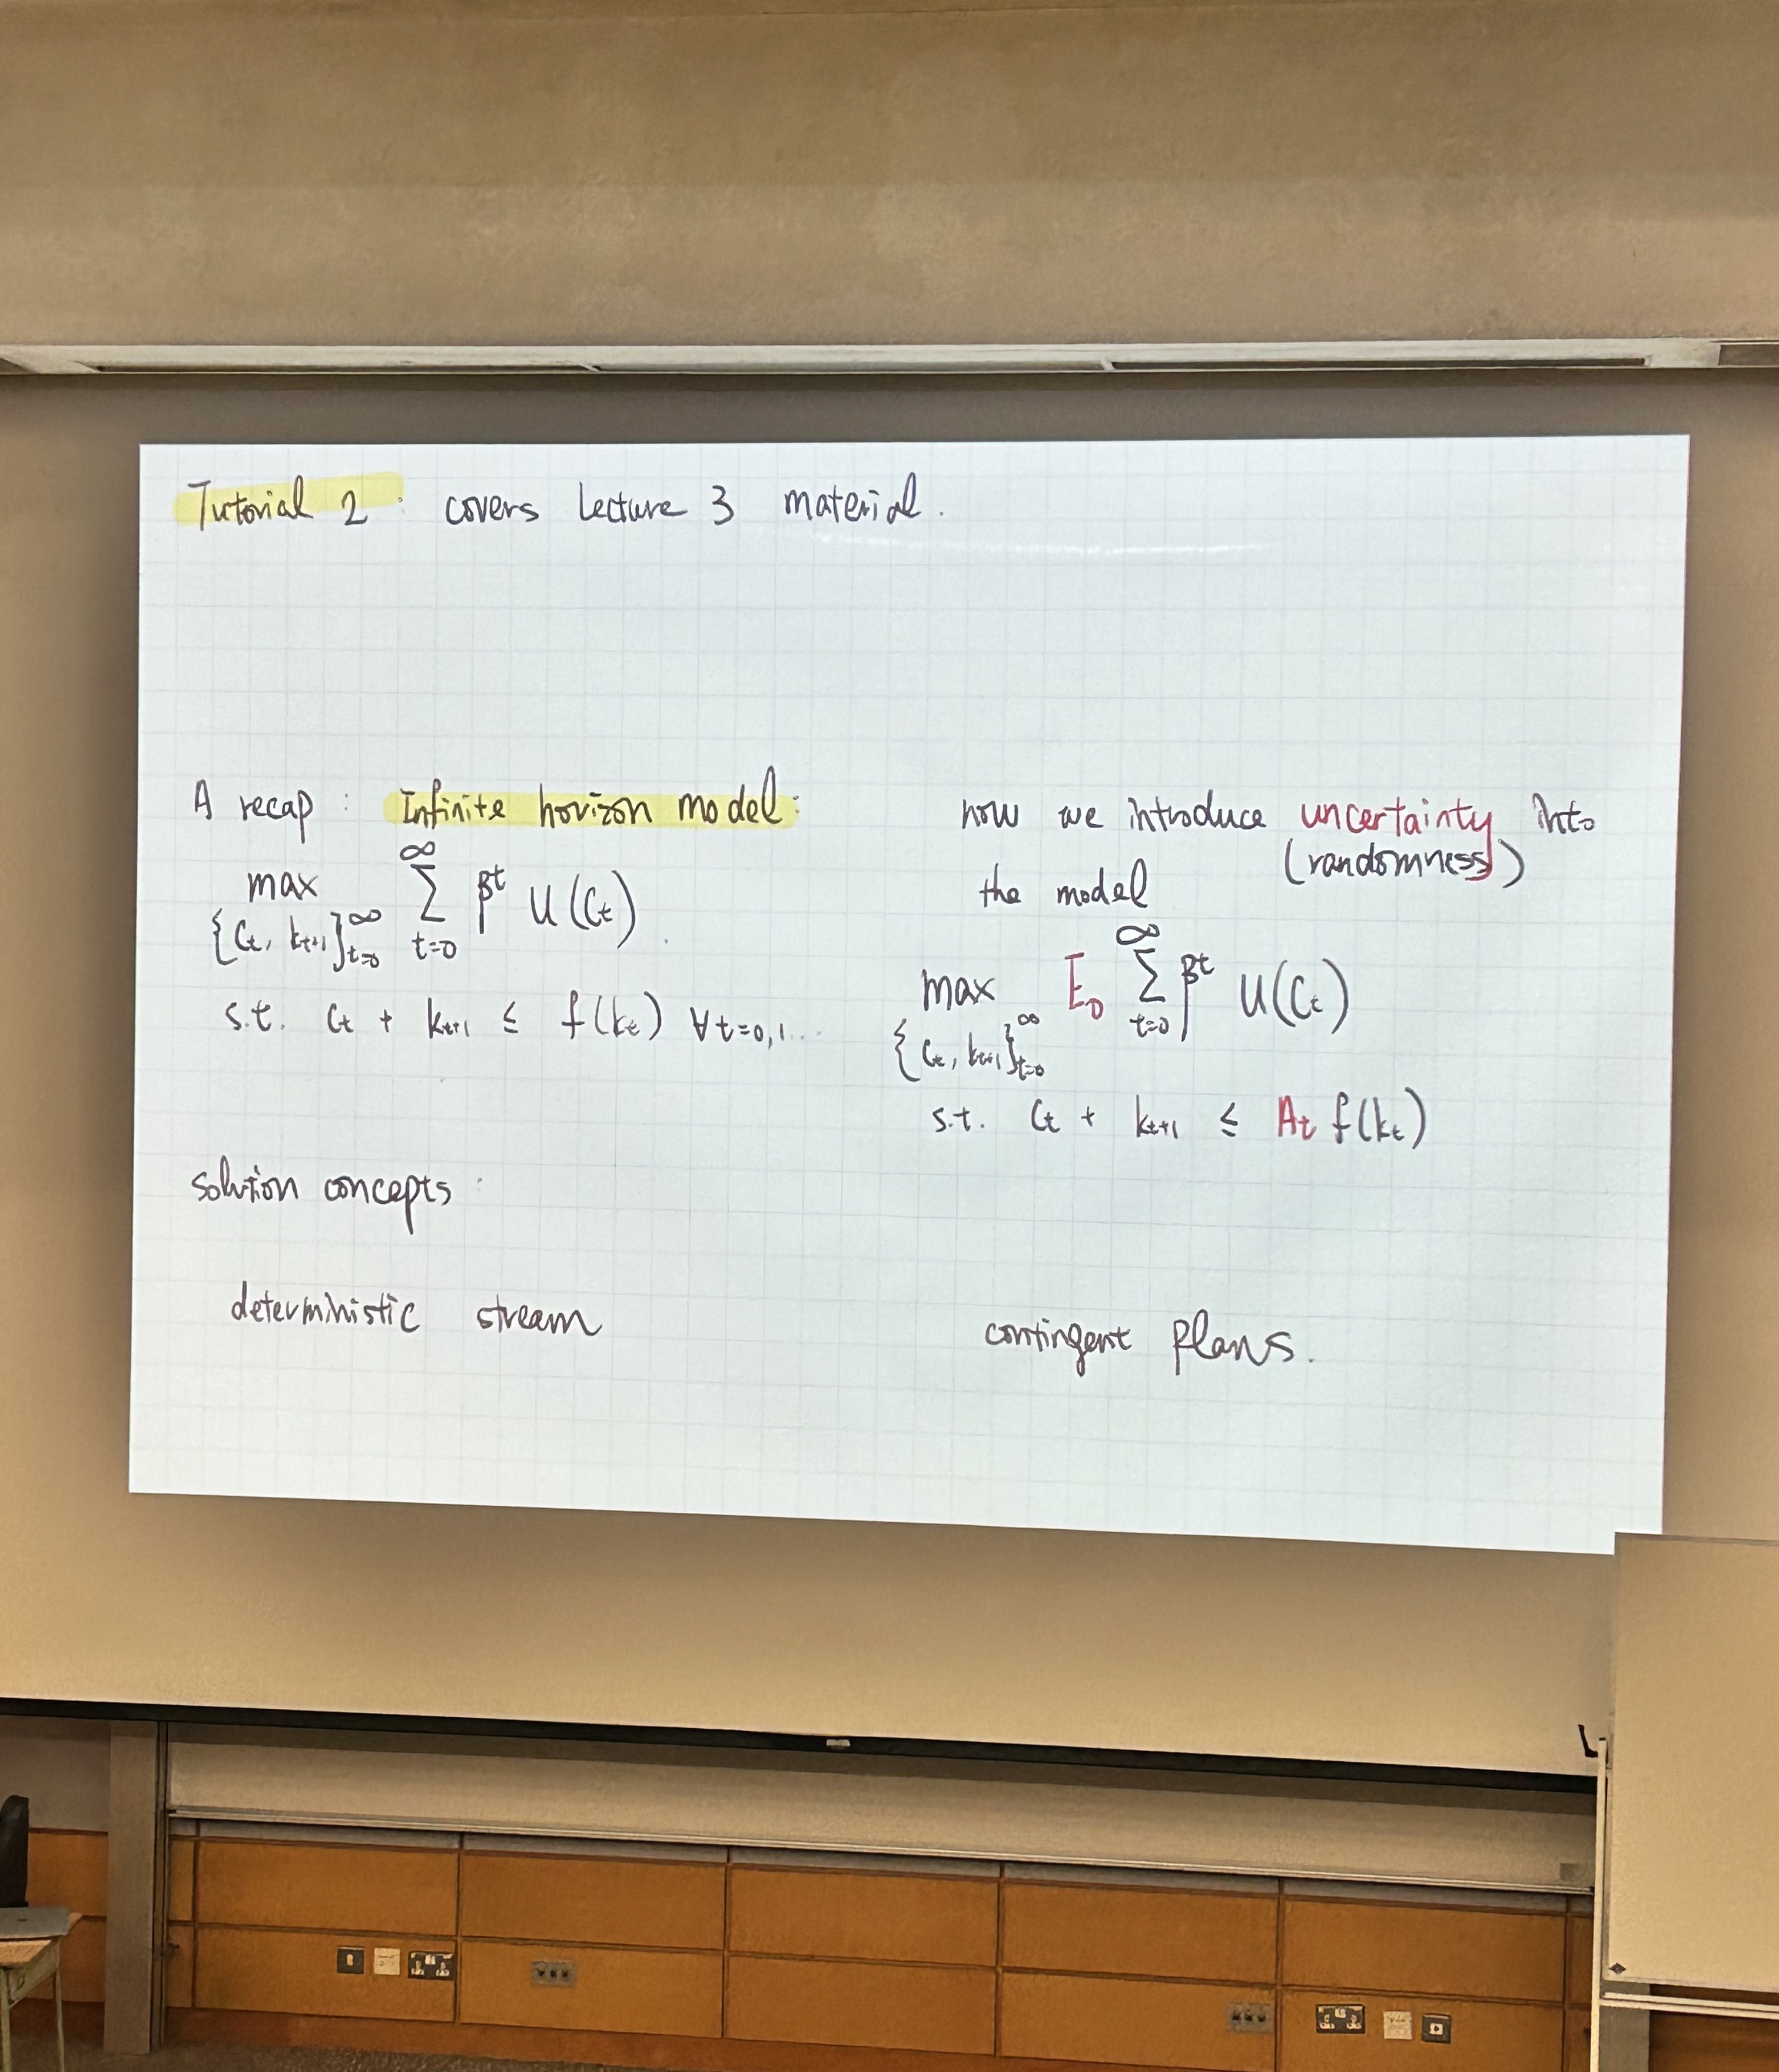 Tutorial 2 : covers Lecture 3 material.
A recap : Infinite horizon model :
max_{\{C_t, k_{t+1}\}_{t=0}^{∞}} \sum_{t=0}^{∞} β^t U(C_t).
s.t. C_t + k_{t+1} ≤ f(k_t) ∀t=0,1...
solution concepts :
deterministic stream
now we introduce uncertainty into
(randomness)
the model
max_{\{C_t, k_{t+1}\}_{t=0}^{∞}} E_0 \sum_{t=0}^{∞} β^t U(C_t)
s.t. C_t + k_{t+1} ≤ A_t f(k_t)
contingent plans.